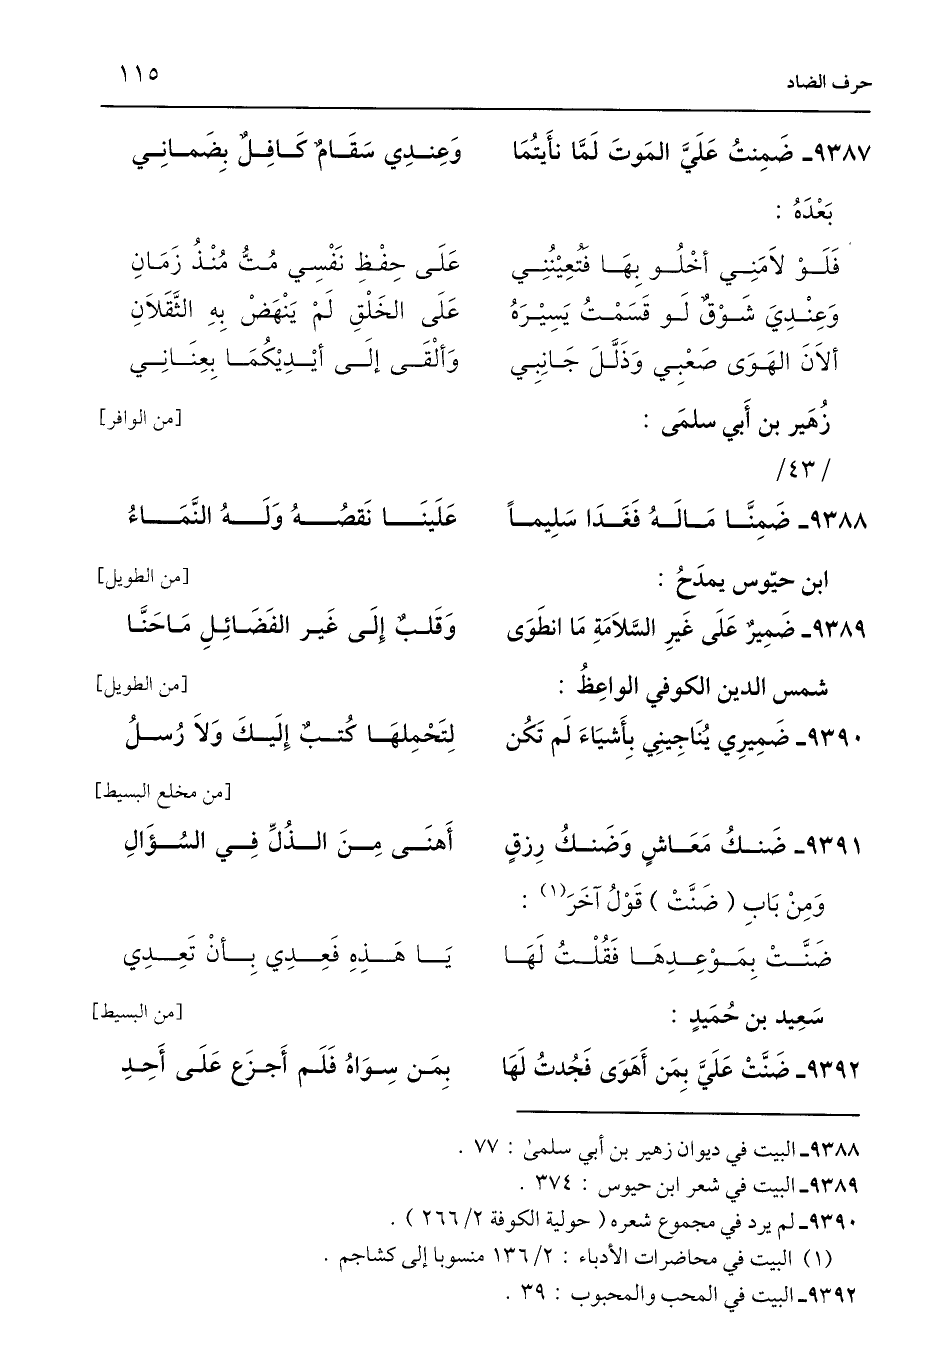 حرف الضاد ١١٥
٩٣٨٧ـ ضَمِنتُ عَلَيَّ المَوتَ لَمَّا نأيتُمَا وَعِندِي سَقَامٌ كَافِلٌ بِضَمانِي
بَعْدَهُ :
فَلَوْ لاَمَنِي أخْلُو بِهَا فَتُعِيْنُنِي عَلَى حِفْظِ نَفْسِي مُتُّ مُنْذُ زَمَانِ
وَعِنْدِيَ شَوْقٌ لَو قَسَمْتُ يَسِيْرَهُ عَلَى الخَلْقِ لَمْ يَنْهَضْ بِهِ الثَّقَلاَنِ
ألاَنَ الهَوَى صَعْبِي وَذَلَّلَ جَانِبِي وَألْقَى إلَى أيْدِيْكُمَا بِعِنَانِي
زُهَير بن أَبي سلمَى : [من الوافر]
/ ٤٣/
٩٣٨٨ـ ضَمِنَّا مَالَهُ فَغَدَا سَلِيماً عَلَينَا نَقصُهُ وَلَهُ النَّمَاءُ
ابن حيّوس يمدَحُ : [من الطويل]
٩٣٨٩ـ ضَمِيرٌ عَلَى غَيرِ السَّلاَمَةِ مَا انطَوَى وَقَلبٌ إلَى غَيرِ الفَضَائِلِ مَاحَنَّا
شمس الدين الكوفي الواعِظُ : [من الطويل]
٩٣٩٠ـ ضَمِيرِي يُنَاجِينِي بِأَشيَاءَ لَم تَكُن لِتَحْمِلهَا كُتبٌ إلَيكَ وَلاَ رُسلُ
[من مخلع البسيط]
٩٣٩١ـ ضَنكُ مَعَاشٍ وَضَنكُ رِزقٍ أَهنَى مِنَ الذُلِّ فِي السُؤَالِ
وَمِنْ بَابِ ( ضَنَّتْ ) قَوْلُ آخَرَ(١) :
ضَنَّتْ بِمَوْعِدِهَا فَقُلْتُ لَهَا يَا هَذِهِ فَعِدِي بِأنْ تَعِدِي
سَعِيد بن حُمَيدٍ : [من البسيط]
٩٣٩٢ـ ضَنَّتْ عَلَيَّ بِمَن أَهوَى فَجُدتُ لَهَا بِمَن سِوَاهُ فَلَم أَجزَع عَلَى أَحِدِ
٩٣٨٨ـ البيت في ديوان زهير بن أبي سلمىٰ : ٧٧ .
٩٣٨٩ـ البيت في شعر ابن حيوس : ٣٧٤ .
٩٣٩٠ـ لم يرد في مجموع شعره ( حولية الكوفة ٢/ ٢٦٦ ) .
(١) البيت في محاضرات الأدباء : ٢/ ١٣٦ منسوبا إلى كشاجم .
٩٣٩٢ـ البيت في المحب والمحبوب : ٣٩ .